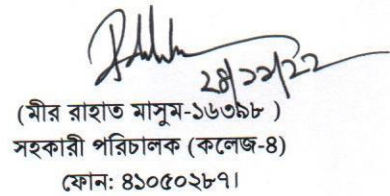 ২৪/১১/২২
(মীর রাহাত মাসুম-১৬৩৯৮ )
সহকারী পরিচালক (কলেজ-৪)
ফোন: ৪১০৫০২৮৭।